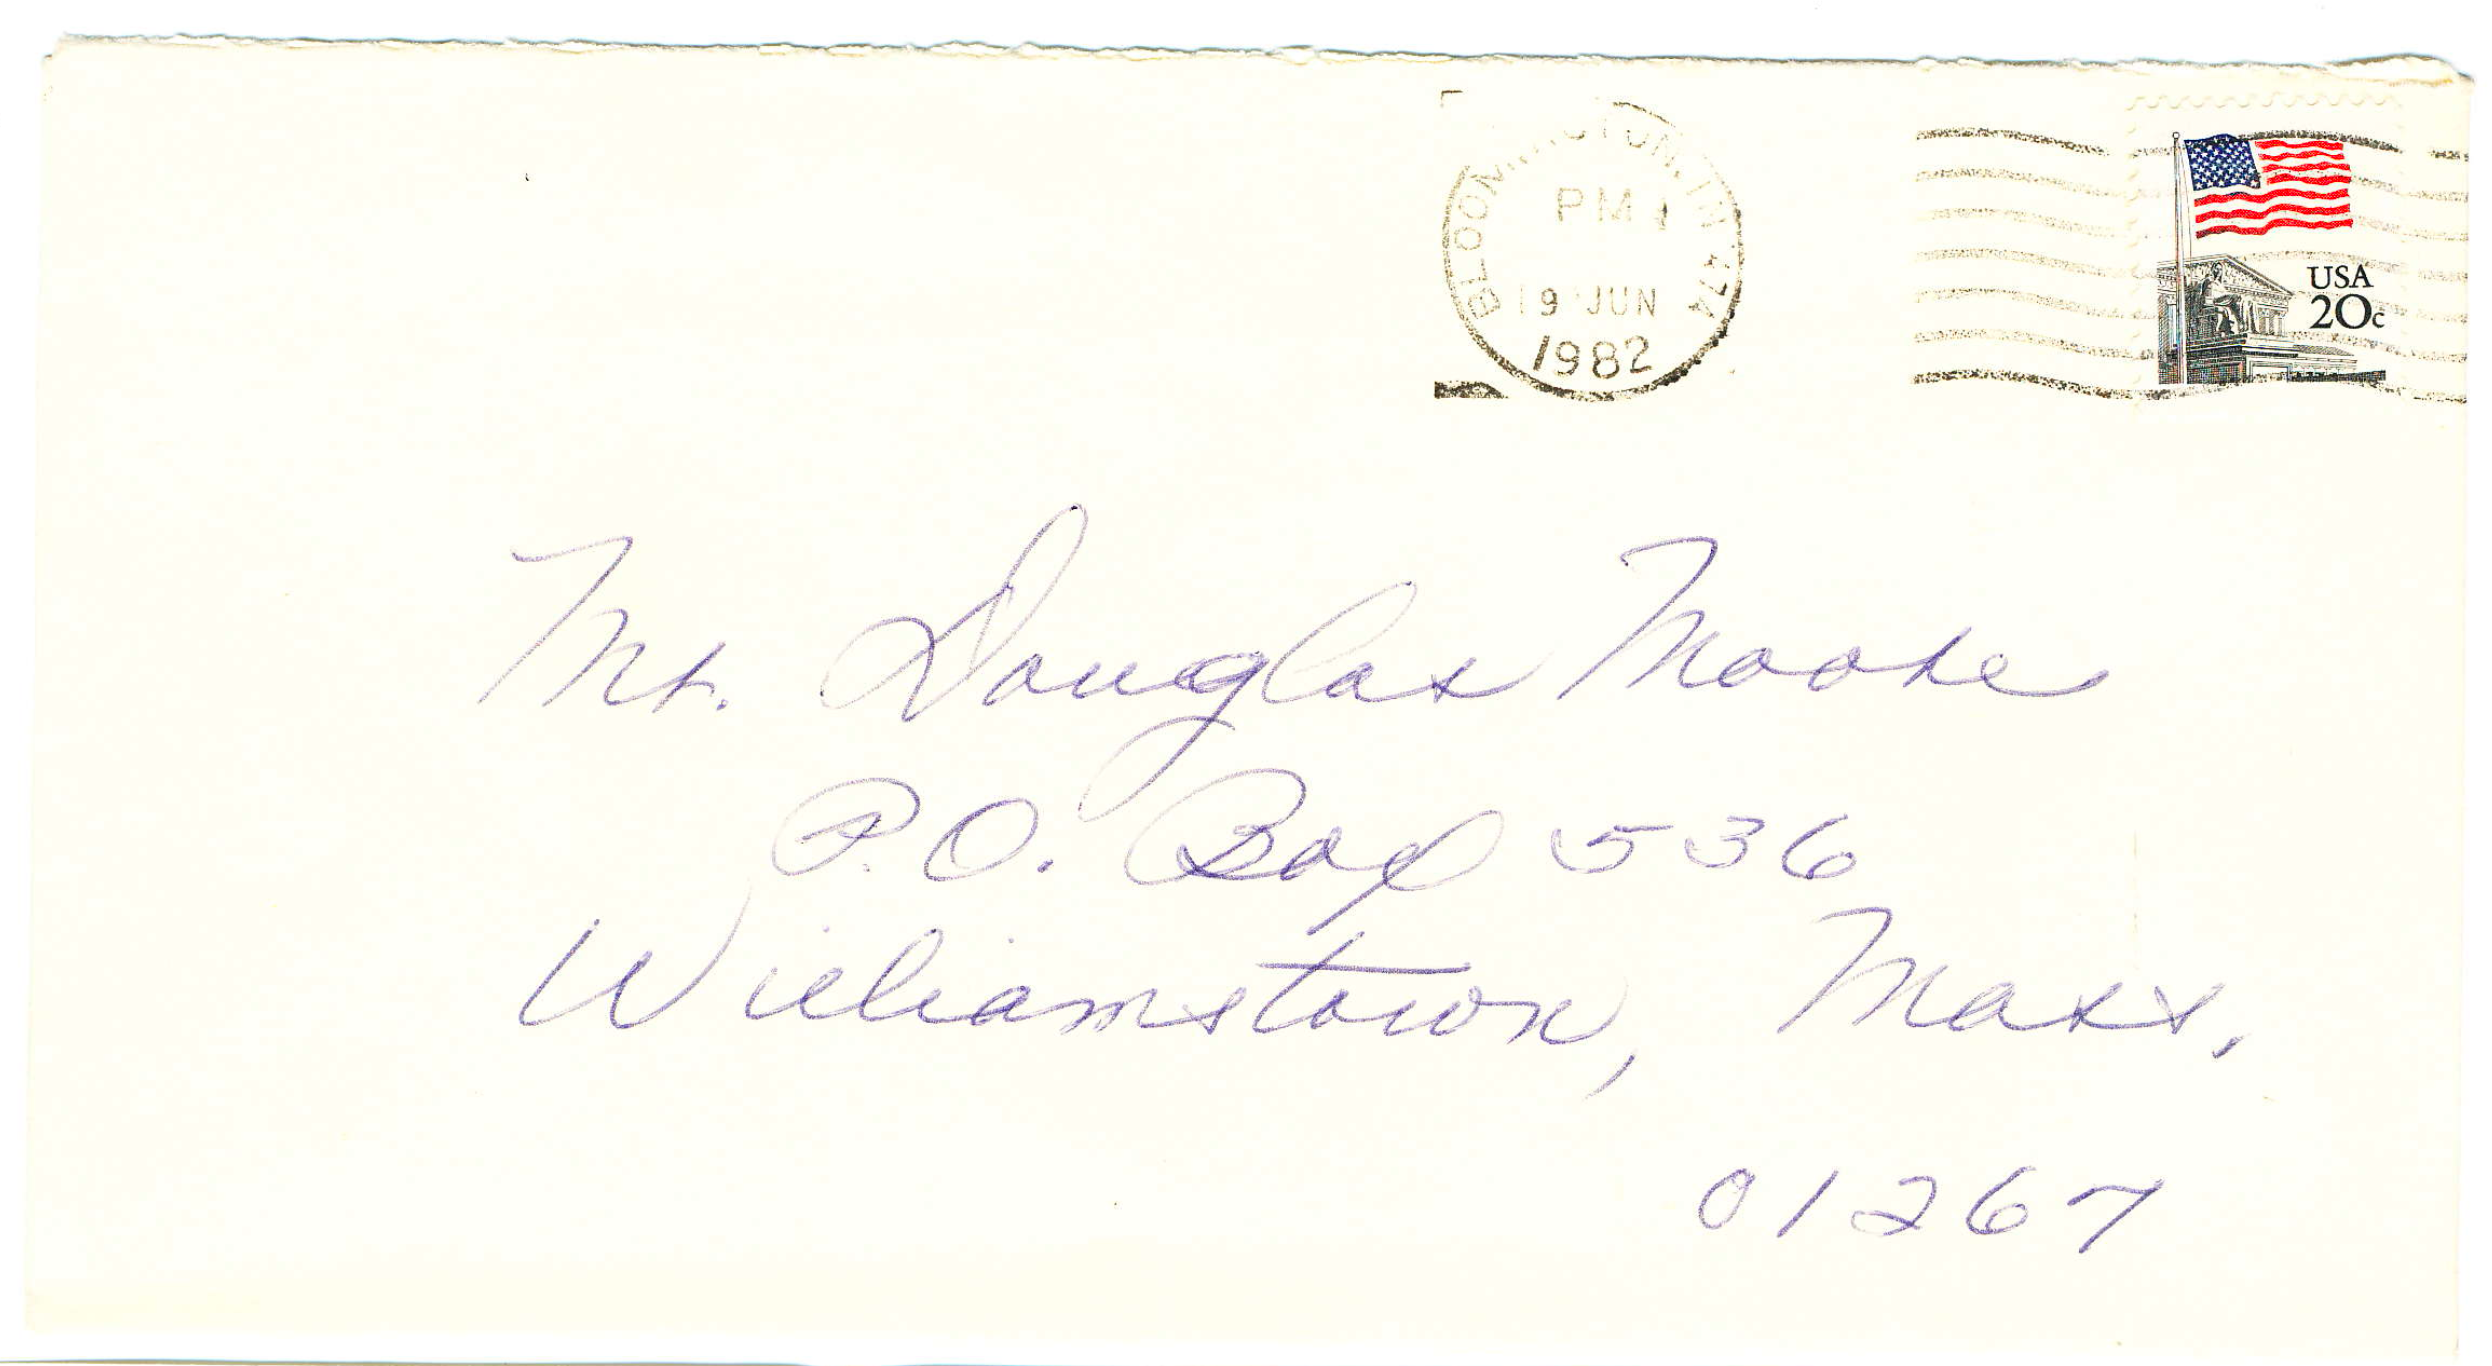 BLOOMINGTON, IN 474
PM
19 JUN
1982
USA
20c
Mr. Douglas Moore
P.O. Box 536
Williamstown, Mass.
01267